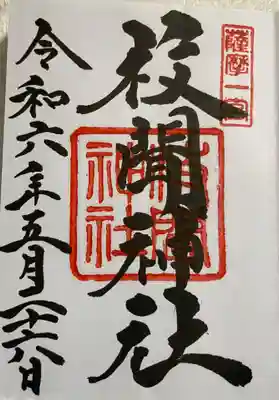 薩摩一宮
枚聞神社
枚聞神社
令和六年五月 日